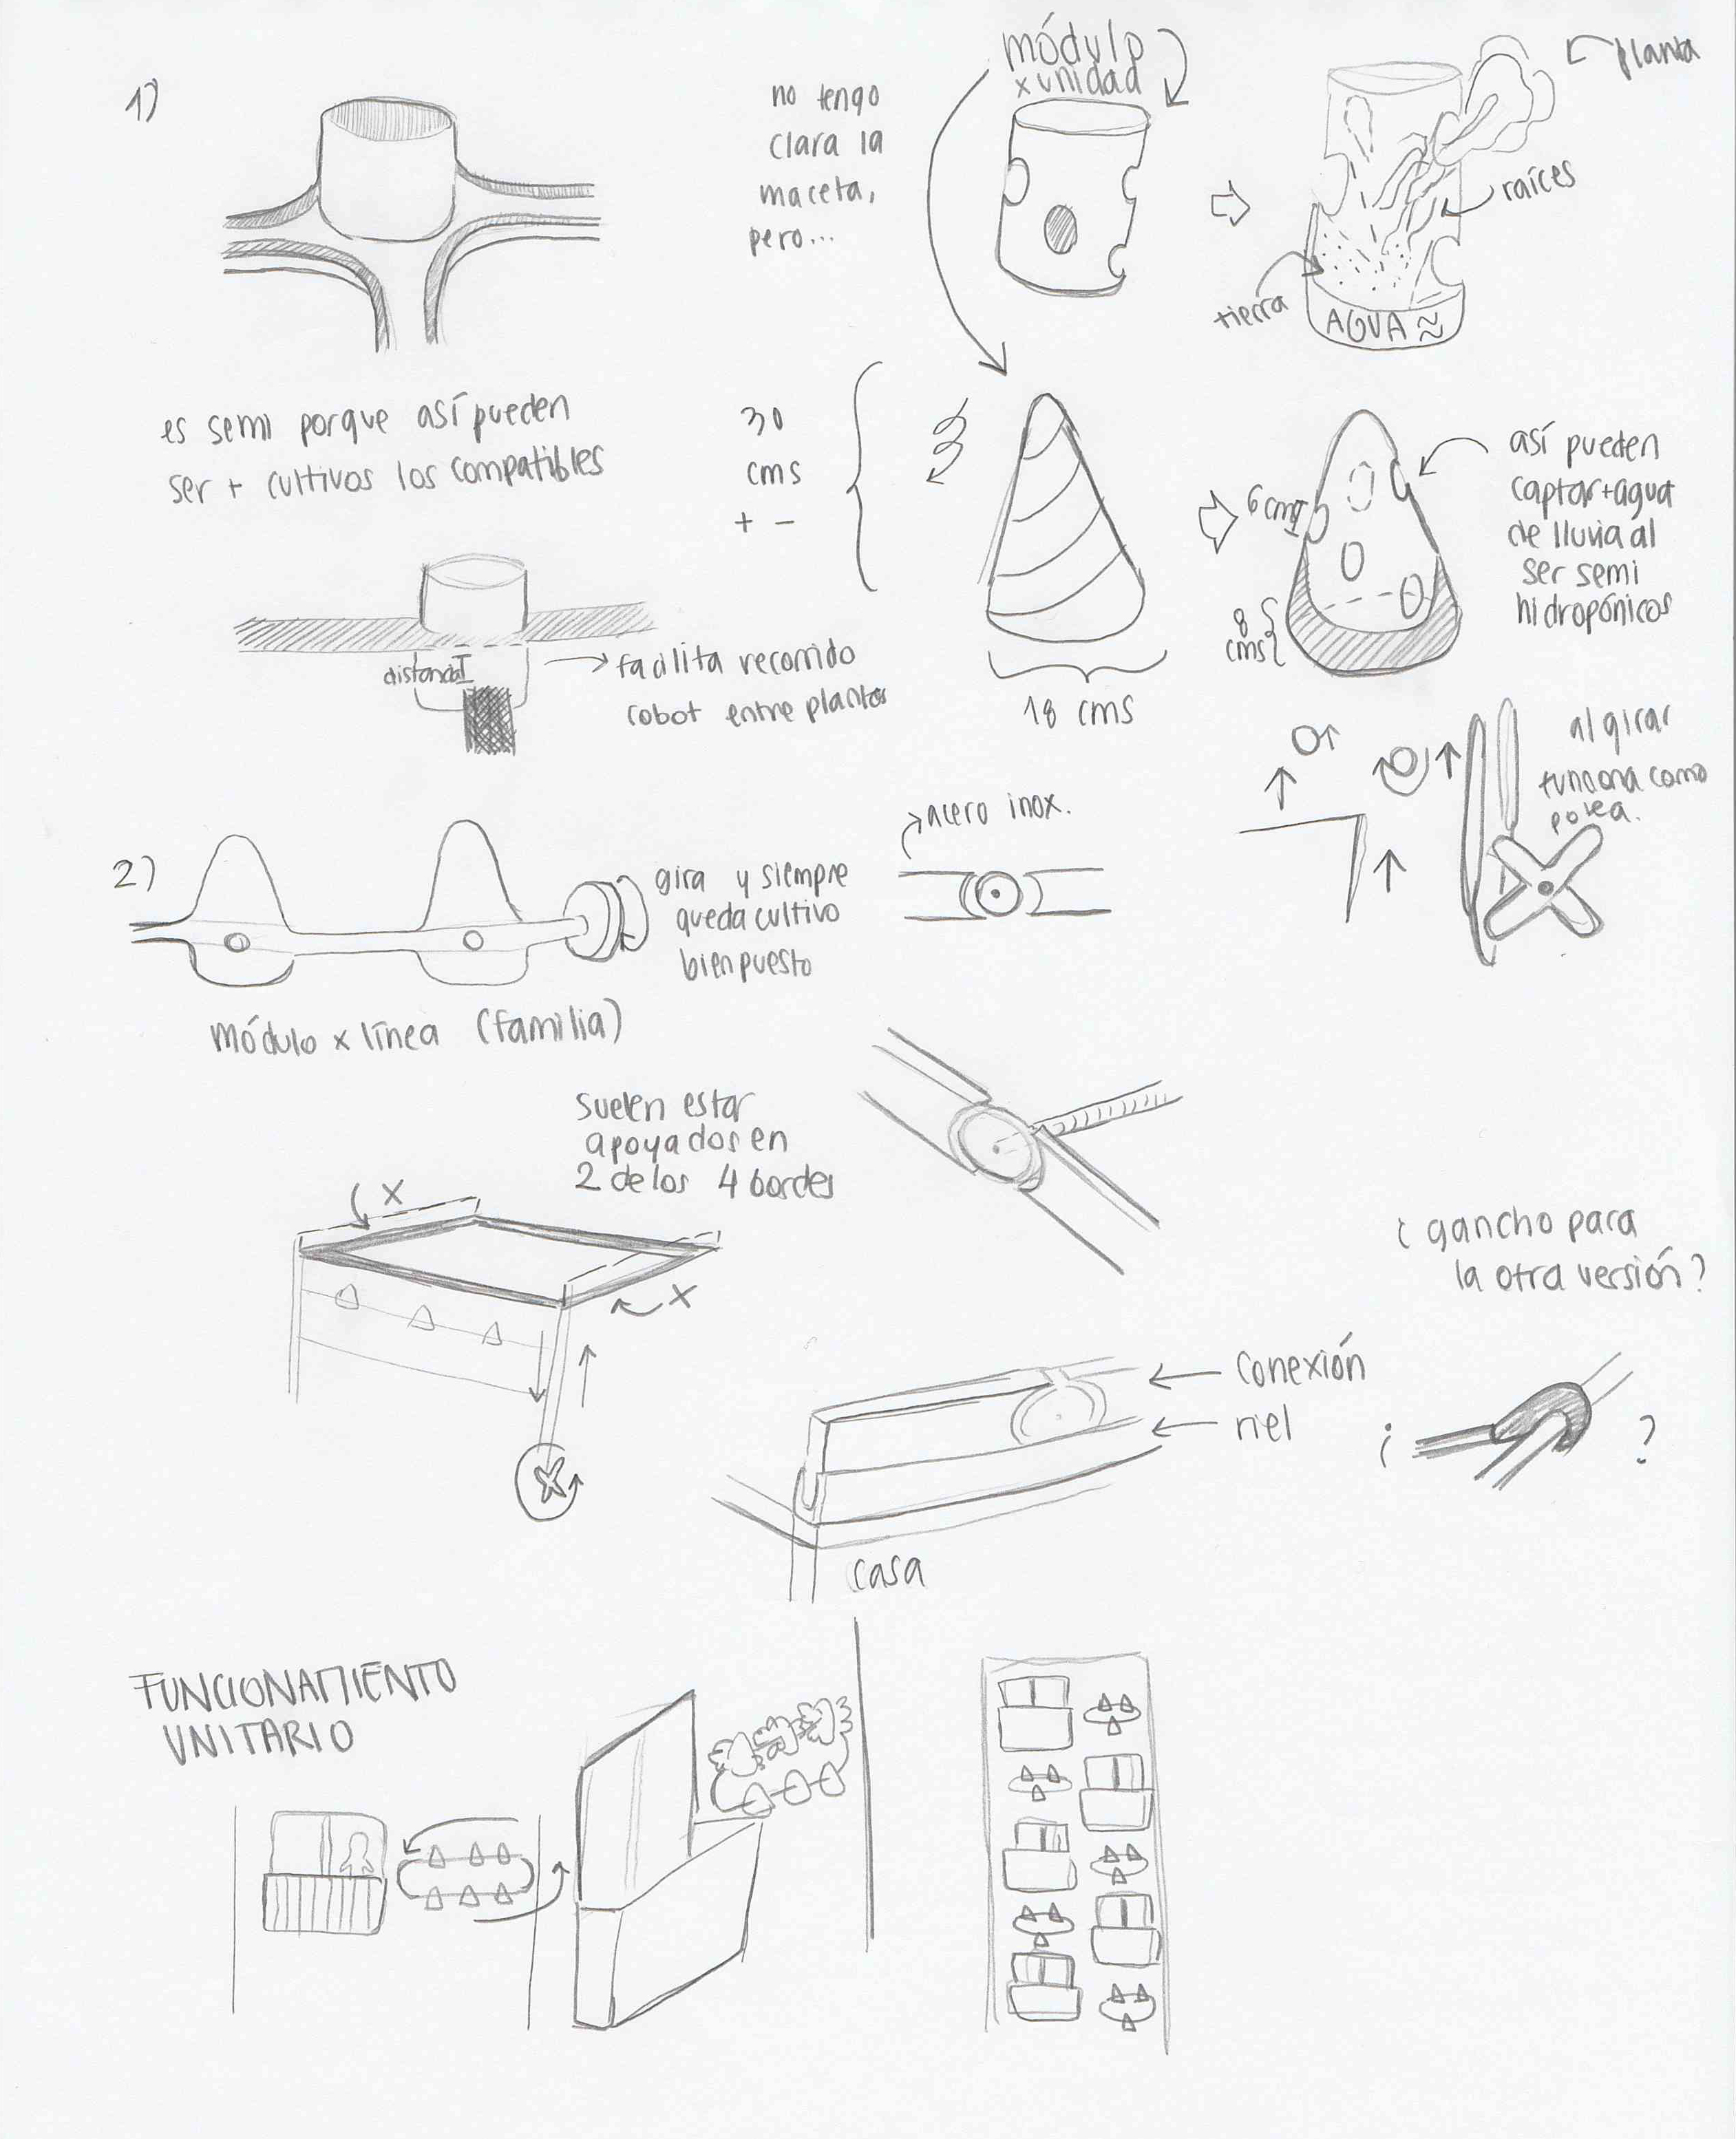 1)
no tengo
clara la
maceta,
pero...
módulo
x unidad
planta
raíces
tierra
AGUA
es semi porque así pueden
ser + cultivos los compatibles
30
cms
+ -
18 cms
6 cms
8
cms
así pueden
captar + agua
de lluvia al
ser semi
hidropónicos
distancia
facilita recorrido
robot entre plantas
2)
gira y siempre
queda cultivo
bien puesto
módulo x línea (familia)
acero inox.
al girar
funciona como
polea.
suelen estar
apoyados en
2 de los 4 bordes
x
x
¿gancho para
la otra versión?
conexión
riel
¿ ?
casa
FUNCIONAMIENTO
UNITARIO